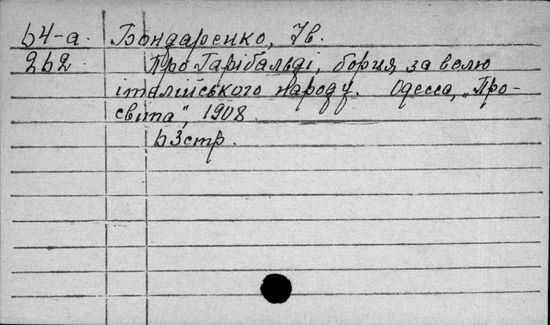 64-а. Бондаренко, Ів.
262 Про Гарібальді, борця за волю
італійського народу. Одесса, „Про-
світа", 1908.
63 стр.